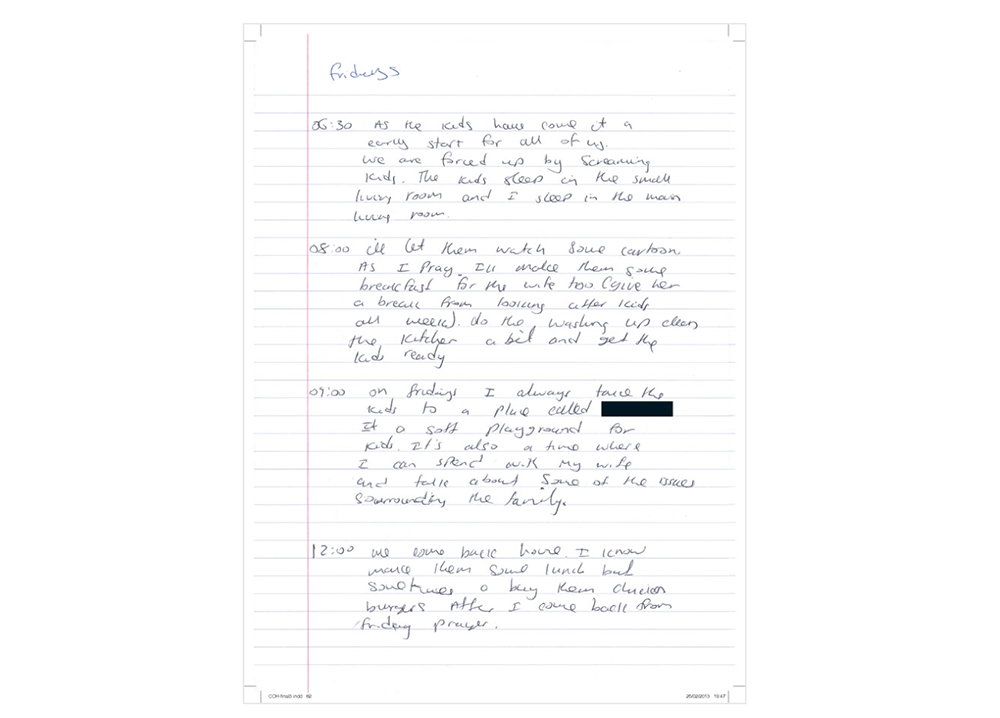 fridays
06:30 As the kids have come it a
early start for all of us.
We are forced up by screaming
kids. The kids sleep in the small
living room and I sleep in the main
living room.
08:00 ill let them watch some cartoon
As I Pray. I'll make them some
breakfast for the wife too (give her
a break from looking after kids
all week). do the washing up clean
the kitchen a bit and get the
kids ready
09:00 on fridays I always take the
kids to a place called
It a soft playground for
kids. It's also a time where
I can spend with my wife
and talk about some of the issues
sourrounding the family.
12:00 we come back home. I know
make them some lunch but
sometimes a buy them chicken
burgers After I come back from
friday prayer.
CCH-final3.indd 62 26/02/2013 19:47